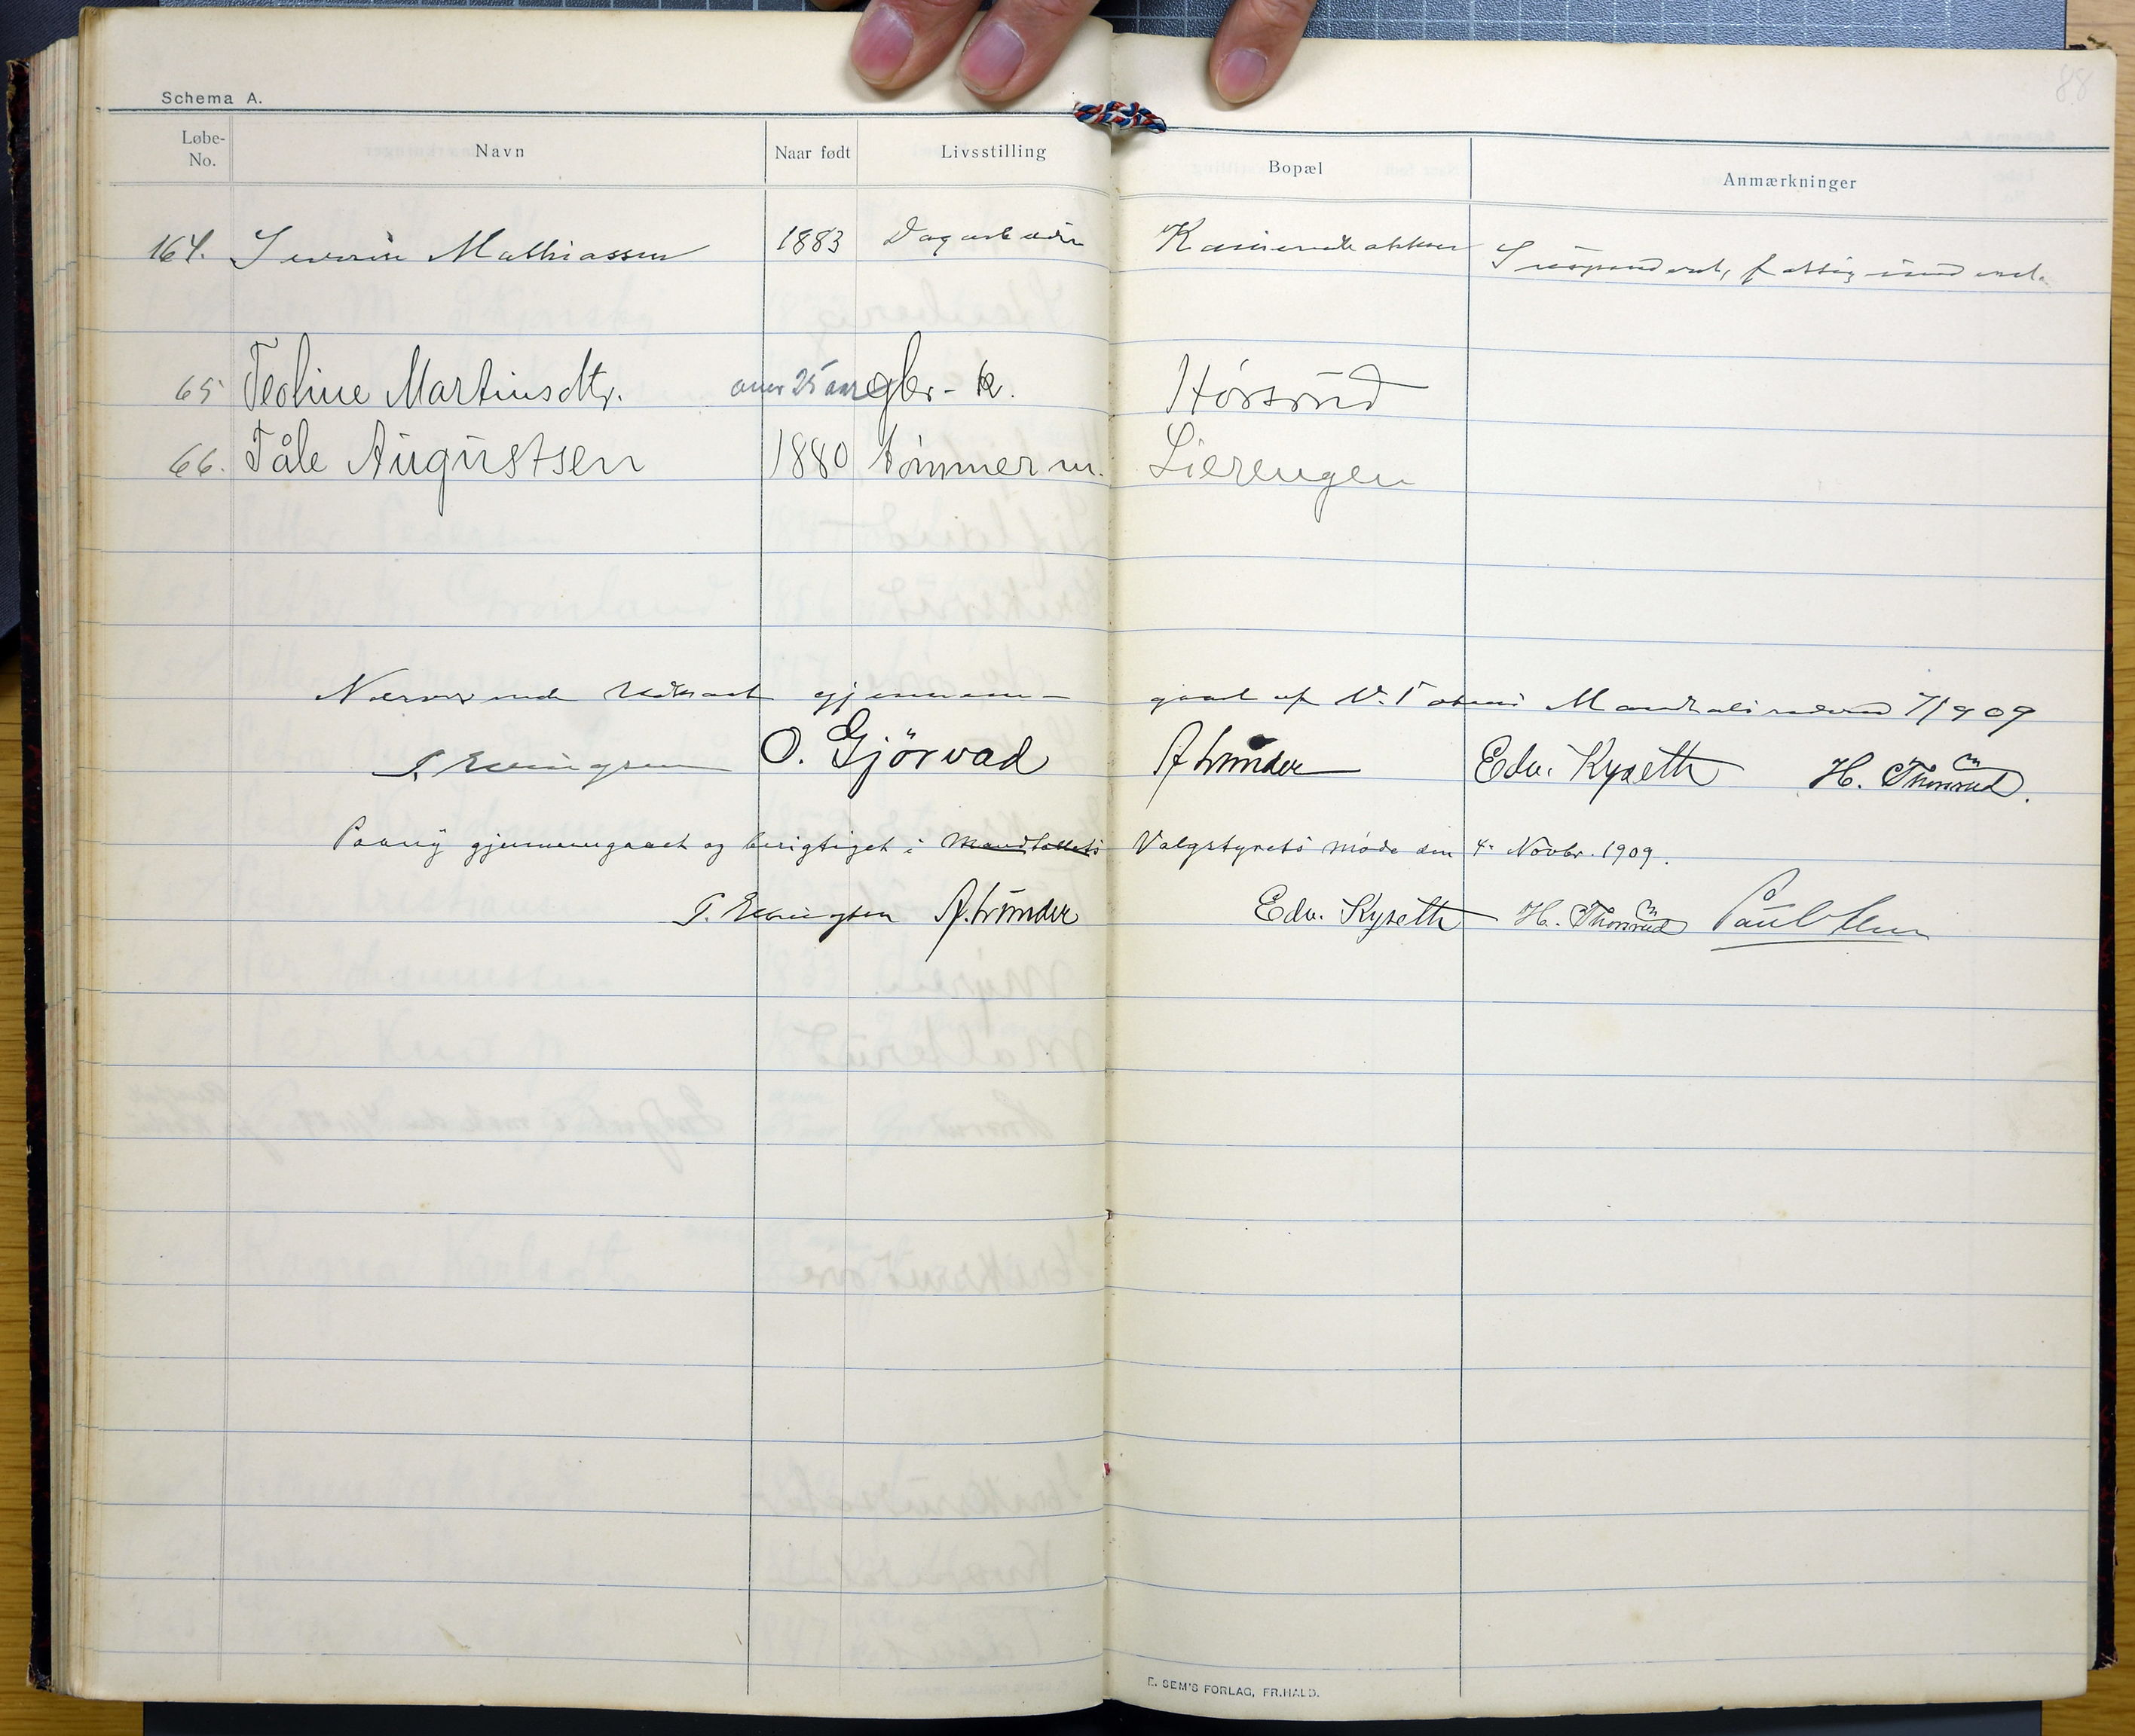 88
Schema A.
Løbe-No. Navn Naar født Livsstilling Bopæl Anmærkninger
164. Severin Mathiassen 1883 Dagarbeider Suspenderet, fattigunderst.
65 Teoline Martinsdtr. over 25 aar gbr-k. Hörsrud
66. Tåle Augustsen 1880 tömmerm. Lierengen
Nærværende Udkast gjennem- gaaet af V. Totens Mandtalsraderne 7/9 09
O. Gjörvad A. Lunder Edv. Kyseth H. Thonrud.
Paany gjennemgaaet og berigtiget i Mandtallets Valgstyrets møde den 4. Novbr. 1909.
A. Lunder Edv. Kyseth H. Thonrud Paul
E. SEM'S FORLAG, FR.HALD.